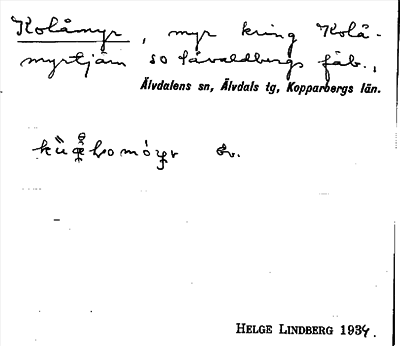 Kolåmyr, myr kring Kolå-
myrtjärn so Lövaldbergs fäb.,
Älvdalens sn, Älvdals tg, Kopparbergs län.
Öv.
HELGE LINDBERG 1934.